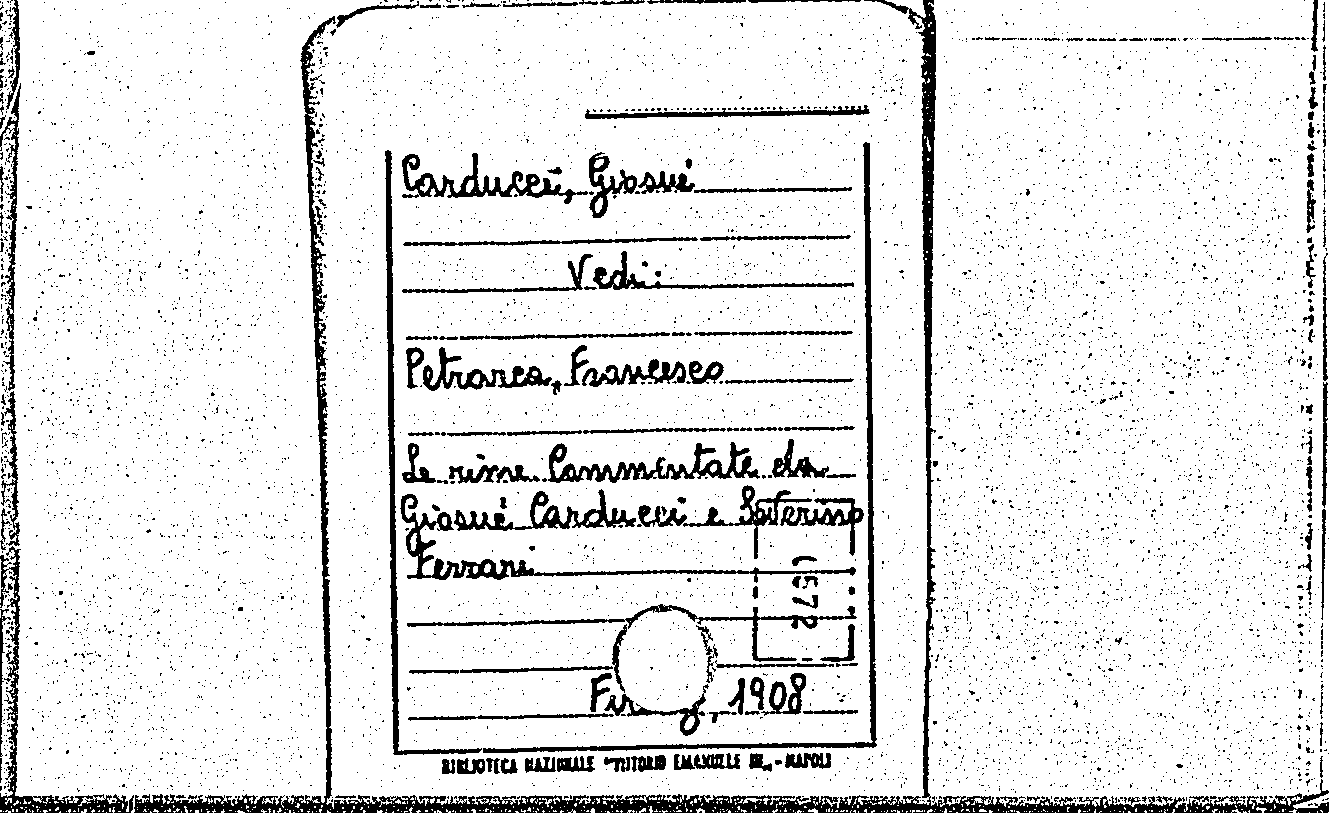 Carducci, Giosuè
Vedi:
Petrarca, Francesco
Le rime Commentate da
Giosuè Carducci e Severino
Ferrari
1572
1908
BIBLIOTECA NAZIONALE "VITTORIO EMANUELE III„ - NAPOLI